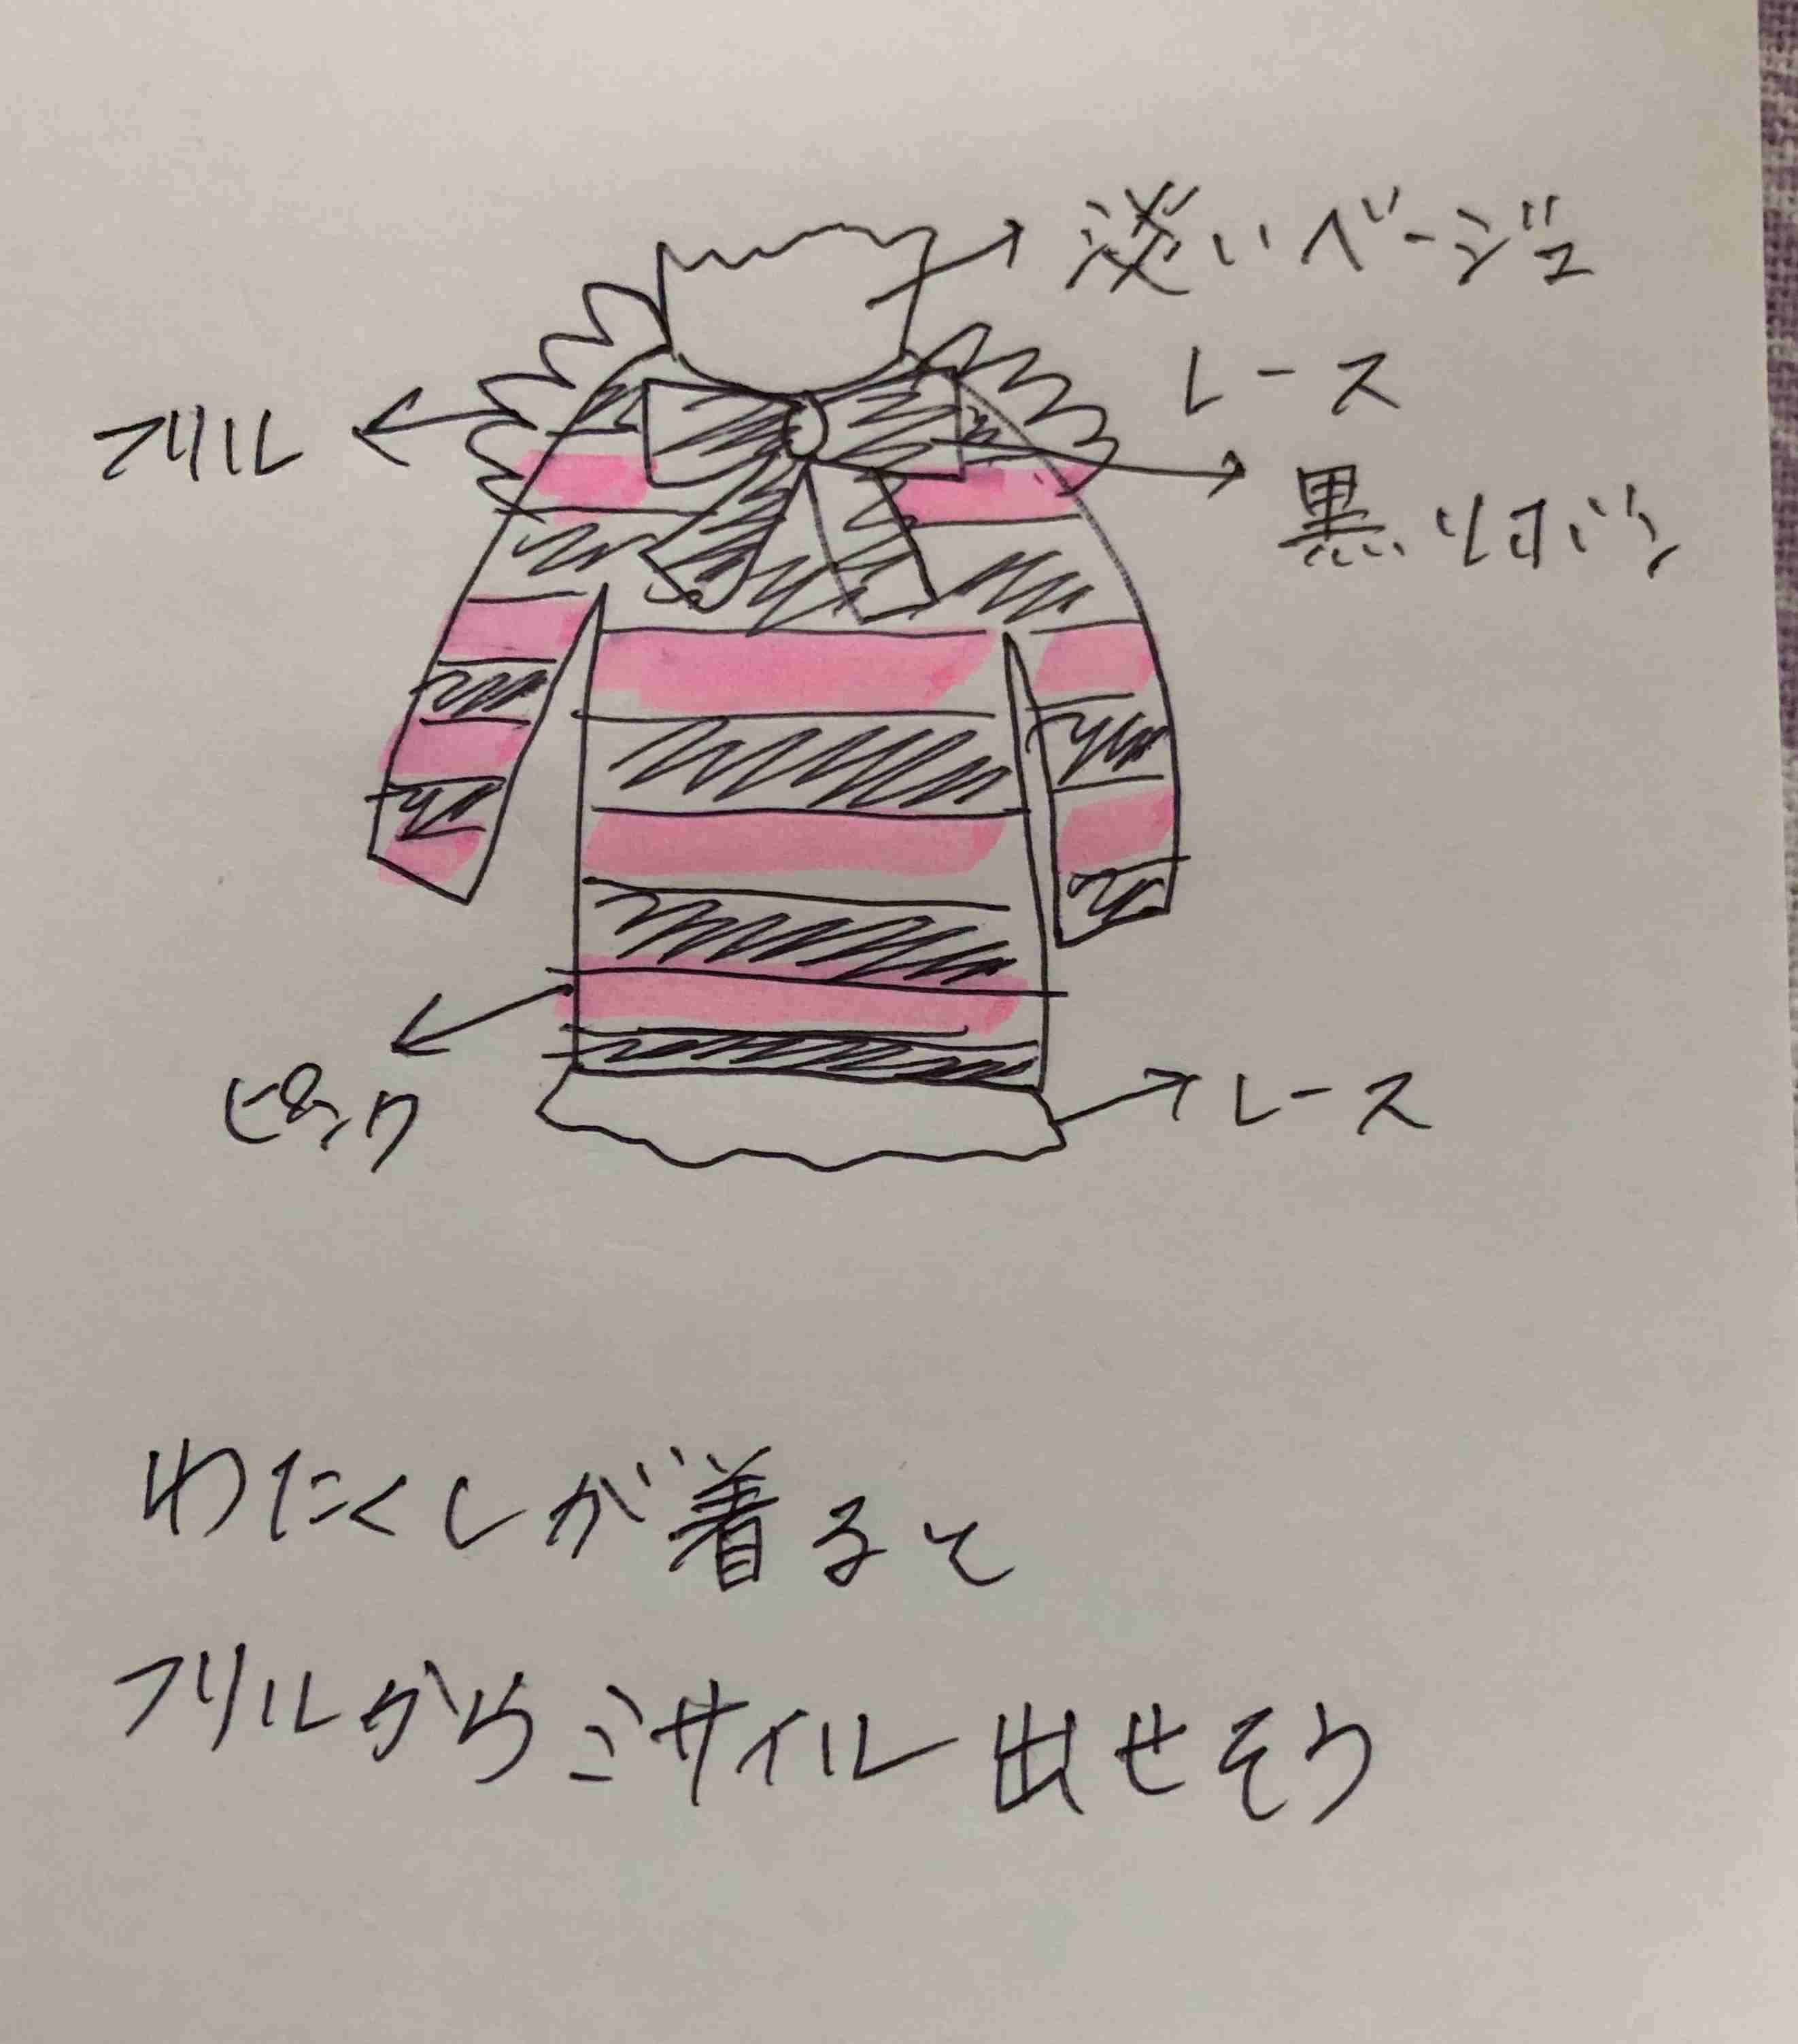 淡いベージュ
レース
フリル
黒リボン
ピンク
レース
わたくしが着ると
フリルからミサイル出せそう